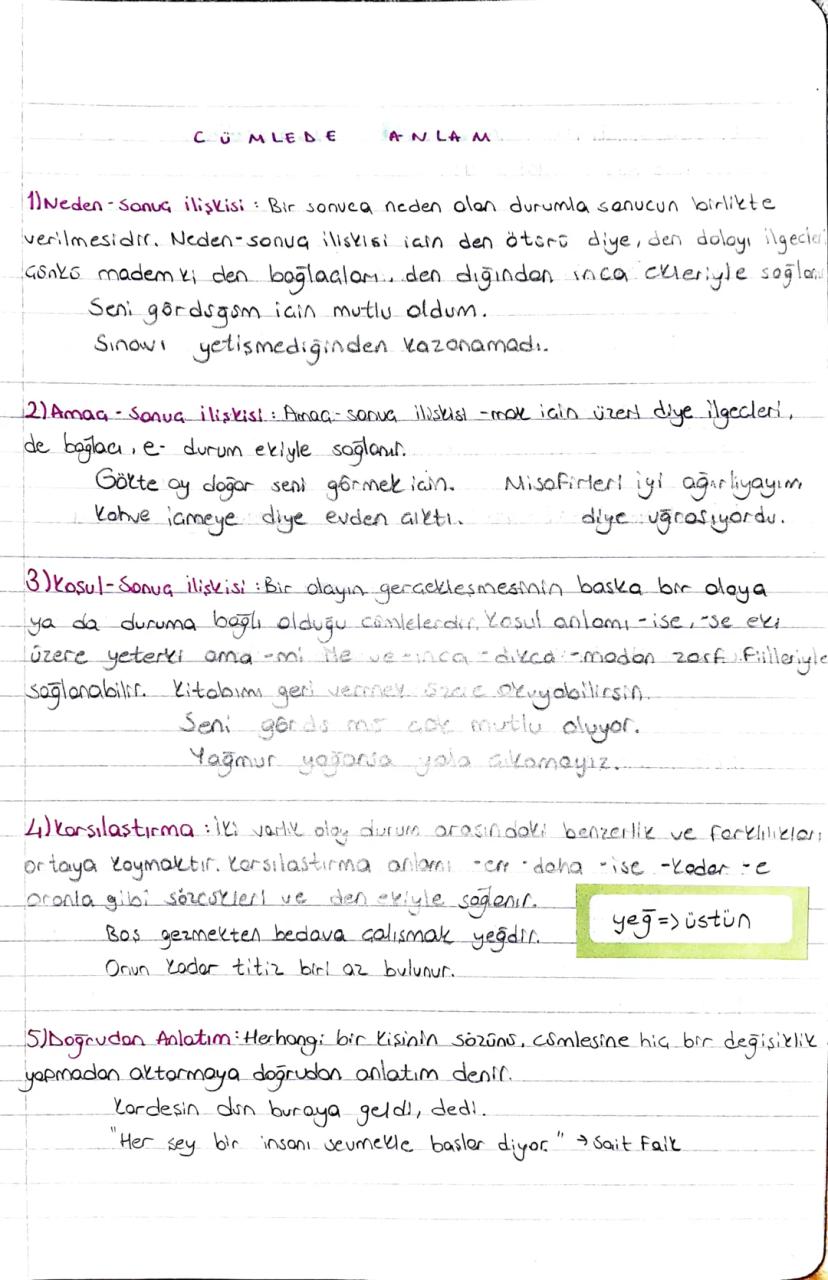 CÜMLEDE ANLAM
1)Neden-sonuç ilişkisi : Bir sonuca neden olan durumla sonucun birlikte
verilmesidir. Neden-sonuç ilişkisi için den ötürü diye, den dolayı ilgeçler
çünkü mademki den bağlaçları, den dığından ınca ekleriyle sağlanı
Seni gördüğüm için mutlu oldum.
Sınavı yetişmediğinden kazanamadı.
2)Amaç-Sonuç ilişkisi : Amaç-sonuç ilişkisi -mak için üzeri diye ilgeçleri,
de bağlacı, e- durum ekiyle sağlanır.
Gökte ay doğar seni görmek için. Misafirleri iyi ağırlıyayım
Kahve içmeye diye evden çıktı. diye uğraşıyordu.
3)Koşul-Sonuç ilişkisi : Bir olayın gerçekleşmesinin başka bir olaya
ya da duruma bağlı olduğu cümlelerdir. Koşul anlamı -ise, -se eki
üzere yeterki ama -mi ile ve -ınca -dıkça -madan zarf fiilleriyle
sağlanabilir. Kitabımı geri vermek üzere okuyabilirsin.
Seni gördü mü çok mutlu oluyor.
Yağmur yağarsa yola çıkamayız.
4)Karşılaştırma : İki varlık olay durum arasındaki benzerlik ve farklılıkları
ortaya koymaktır. Karşılaştırma anlamı -en -daha -ise -kadar -e
oranla gibi sözcükleri ve den ekiyle sağlanır.
Boş gezmekten bedava çalışmak yeğdir.
yeğ => üstün
Onun kadar titiz biri az bulunur.
5)Doğrudan Anlatım : Herhangi bir kişinin sözünü, cümlesine hiç bir değişiklik
yapmadan aktarmaya doğrudan anlatım denir.
Kardeşin dün buraya geldi, dedi.
"Her şey bir insanı sevmekle başlar diyor." → Sait Faik